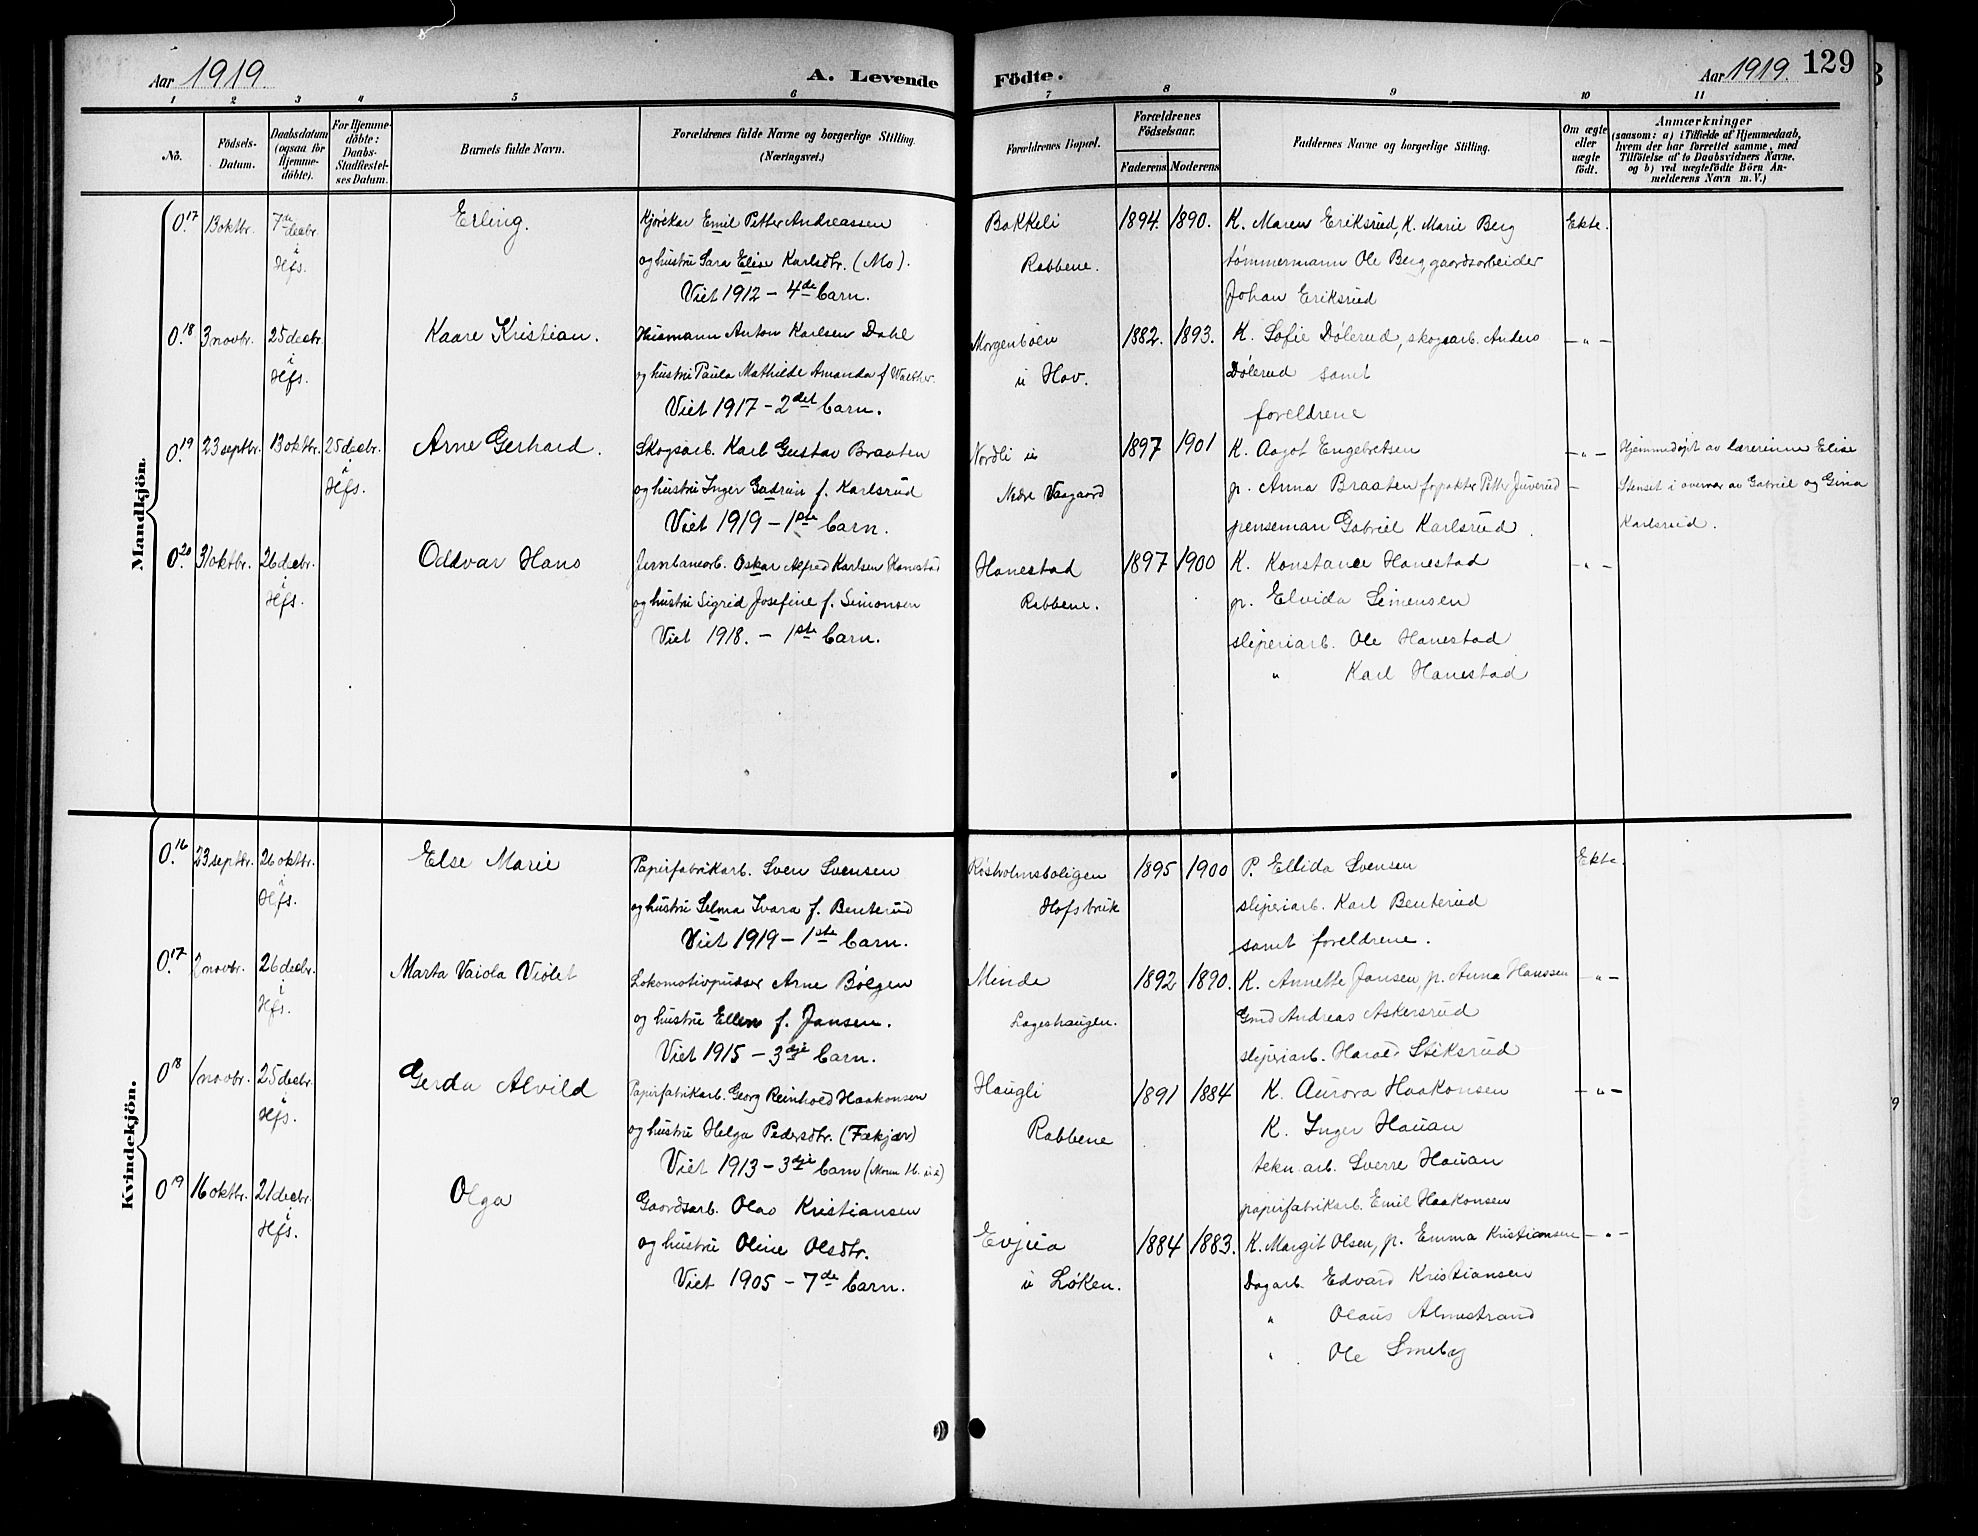 Aar 1919.
A. Levende
Födte.
Aar 1919.
129
1 2 3 4 5 6 7 8 9 10 11
No.
Födsels-
Datum.
Daabsdatum
(ogsaa for
Hjemme-
döbte).
For Hjemme-
döbte:
Daabs-
Stadfæstel-
ses Datum.
Barnets fulde Navn.
Forældrenes fulde Navne og borgerlige Stilling.
(Næringsvei.)
Forældrenes Bopæl.
Forældrenes
Födselsaar.
Faderens. Moderens.
Faddernes Navne og borgerlige Stilling.
Om ægte
eller
uægte
født.
Anmærkninger
(saasom: a) i Tilfælde af Hjemmedaab,
hvem der har forrettet samme, med
Tilföielse af to Daabsvidners Navne,
og b) ved uægtefödte Börn An-
melderens Navn m. V.)
Mandkjön.
0.17 13 oktbr. 7de desbr. i Hfs.
Erling.
Kjørekar Emil Petter Andreassen
og hustru Sara Elise Karlsdtr. (Mo).
Viet 1912 - 4de barn.
Bakkeli
Rabbene.
1894. 1890.
K. Maren Eriksrud, K. Marie Berg
tømmermann Ole Berg, gaardsarbeider
Johan Eriksrud
Ekte.
0.18 3 novbr. 25 desbr. i Hfs.
Kaare Kristian.
Husmann Anton Karlsen Dahl
og hustru Paula Mathilde Amanda f. Walther.
Viet 1917 - 2det barn.
Morgenbøen
u Hov.
1882. 1893.
K. Sofie Dølerud, skogsarb. Anders
Dølerud samt
foreldrene
- " -
0.19 23 septbr. 13 oktbr. 25 desbr. i Hfs.
Arne Gerhard.
Skogsarb. Karl Gustav Braaten
og hustru Inger Gudrun f. Karlsrud
Viet 1919 - 1ste barn.
Nordli u
Nedre Vaagaard
1897 1901
K. Aagot Engebretsen
p. Anna Braaten forpakter Petter Juverud
penseman Gabriel Karlsrud.
- " -
Hjemmedøpt av lærerinne Elise
Stenset i overvær av Gabriel og Gina
Karlsrud.
0.20 31 oktbr. 26 desbr. i Hfs.
Oddvar Hans
Jernbanearb. Oskar Alfred Karlsen Hanestad
og hustru Sigrid Josefine f. Simonsen
Viet 1918. - 1ste barn.
Hanestad
Rabbene.
1897 1900
K. Konstance Hanestad
p. Elvida Simensen
sliperiarb. Ole Hanestad
" Karl Hanestad
- " -
Kvindekjön.
0.16 23 septbr. 26 oktbr. i Hfs.
Else Marie
Papirfabrikarb. Sven Svensen
og hustru Selma Ivara f. Benterud
Viet 1919 - 1ste barn.
Røsholmsboligen
Hofsbruk
1895 1900
P. Ellida Svensen
sliperiarb. Karl Benterud
samt foreldrene.
Ekte.
0.17 2 novbr. 26 desbr. i Hfs.
Marta Vaiola Violet
Lokomotivpusser Arne Bølgen
og hustru Ellen f. Jansen.
Viet 1915 - 3dje barn.
Minde
Lageshaugen.
1892 1890.
K. Annette Jansen, p. Anna Hanssen
Gmd Andreas Askersrud
sliperiarb. Harald Stiksrud
- " -
0.18 1 novbr. 25 desbr. i Hfs.
Gerda Alvild
Papirfabrikarb. Georg Reinhold Haakonsen
og hustru Helga Pedersdtr. (Fækjær)
Viet 1913 - 3dje barn
Haugli
Rabbene
1891 1884
K. Aurora Haakonsen
K. Inger Hauan
tekn. arb. Sverre Hauan
papirfabrikarb. Emil Haakonsen
- " -
0.19 16 oktbr. 21 desbr. i Hfs.
Olga
Gaardsarb. Olas Kristiansen
og hustru Oline Olsdtr.
Viet 1905 - 7de barn.
Evjua
u Løken.
1884 1883.
K. Margit Olsen, p. Emma Kristiansen
Dagarb. Edvard Kristiansen
" Olaus Almestrand
" Ole Smeby
- " -